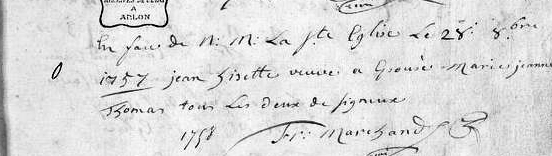 A ARLON
En face de N: M: La s.te Eglise Le 28: 8.bre
1757 jean Gisette veuve a Epousé Marie jeanne
Thomas tous Les deux de signeux
1758 Fr: Marchand